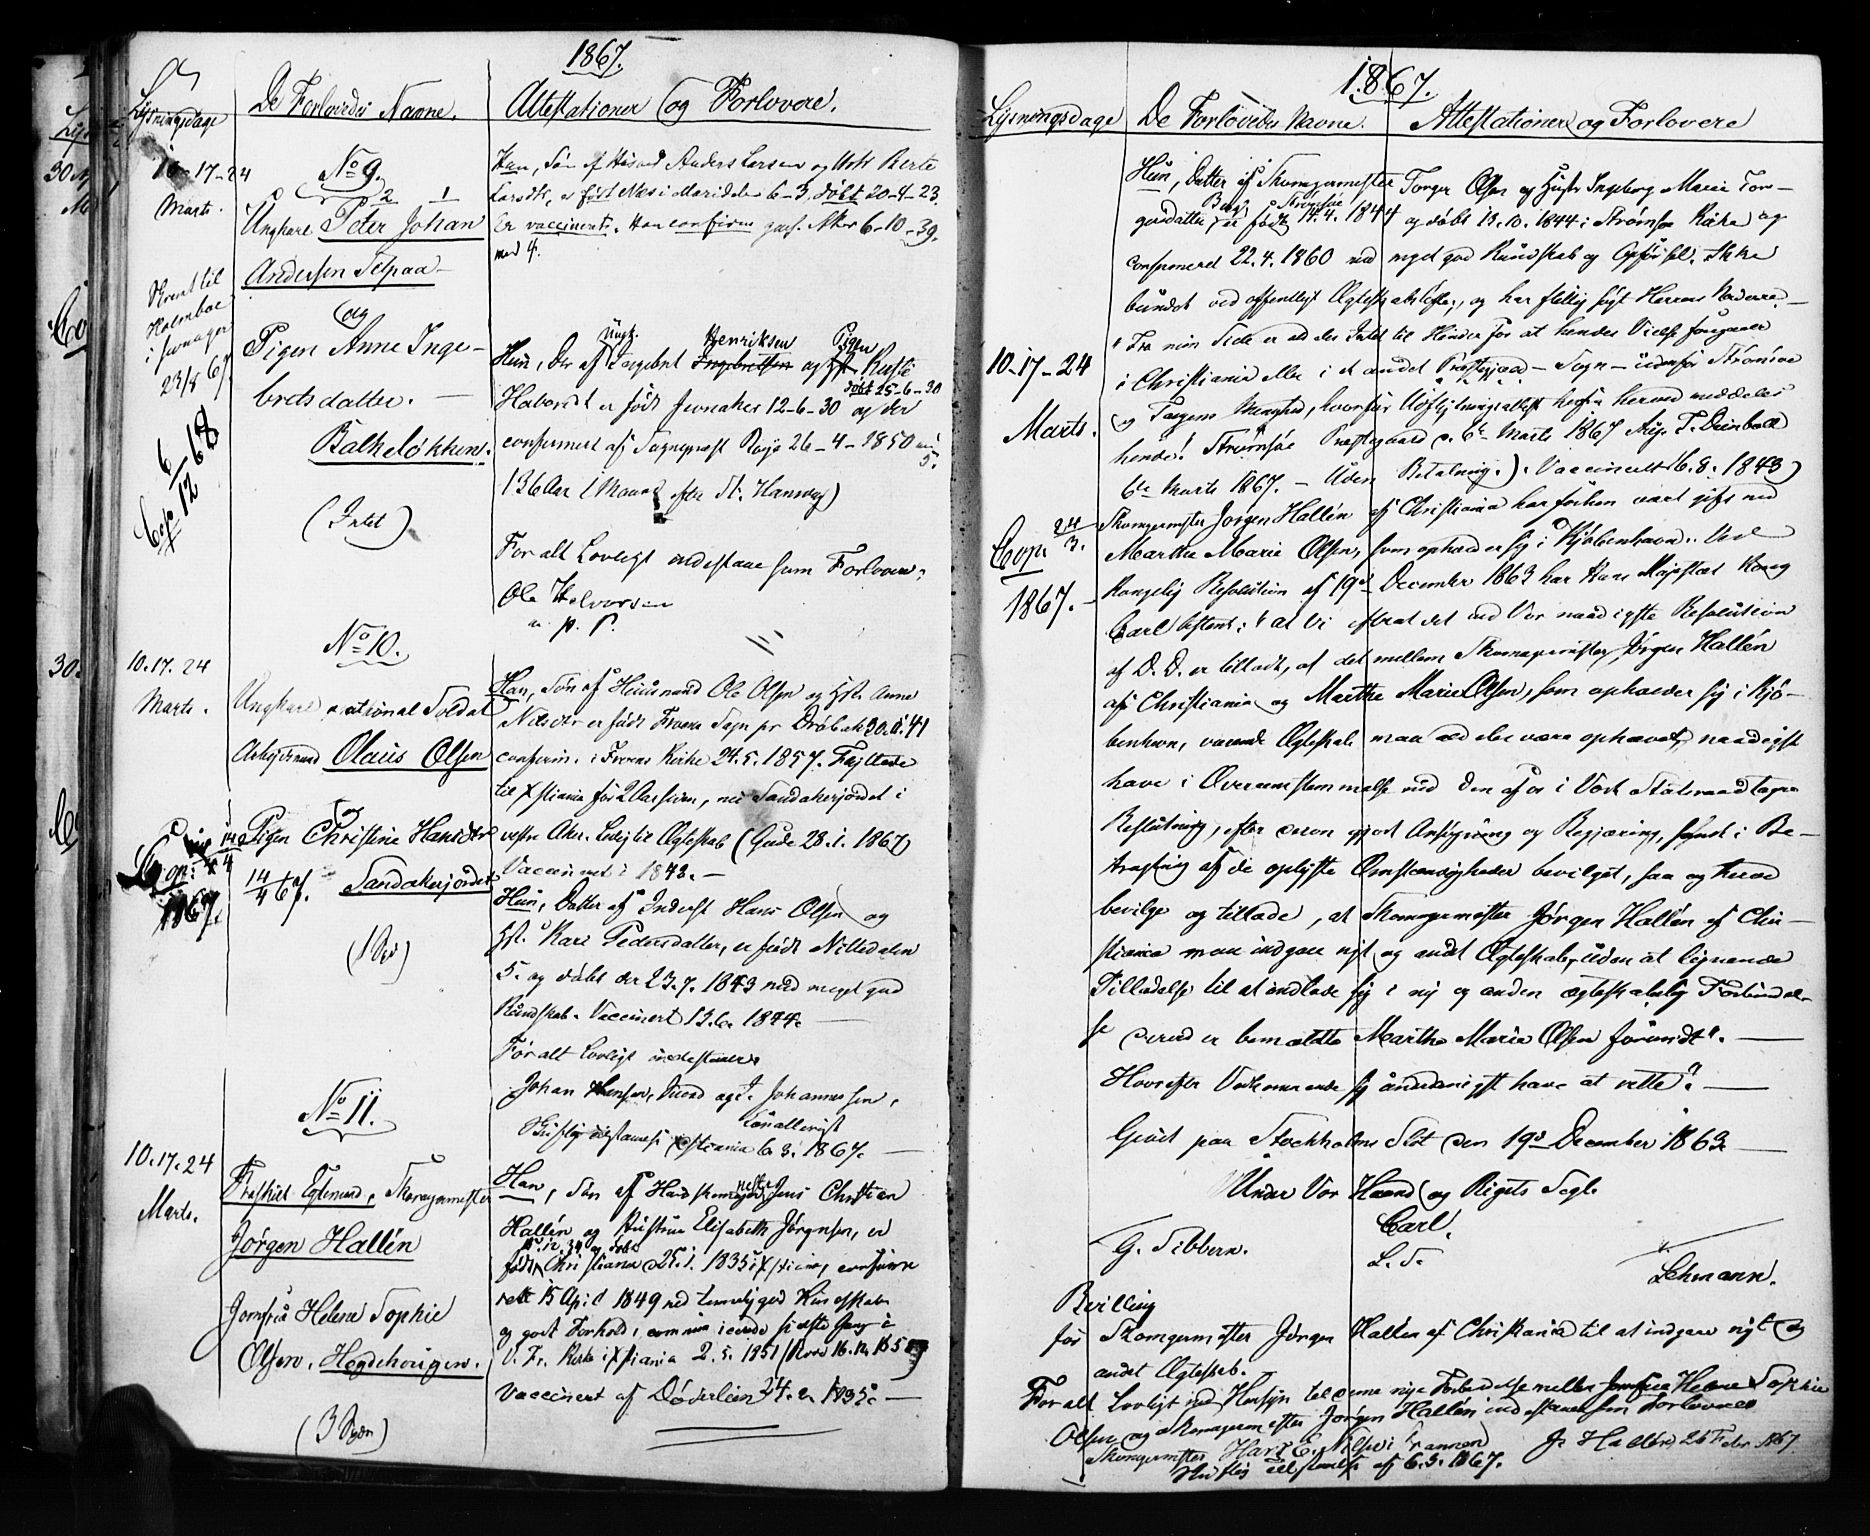 1867.
Lysningsdage
De Forlovedes Navne.
Attestationer og Forlovere.
10-17-24
Marts.
No 9.
2 1
Ungkarl Peter Johan
Andersen
og
Pigen Anne Inge-
bretsdatter.
Balkeløkken.
(Intet)
Skrevet til
Holmboe
i Jevnager
23/8 67.
Cop 6/12 68
Han, Søn af Husmd Anders Larsen og Hstr Berte
Larsdtr, er født Næs i Maridalen 6-3, døbt 20-4-23.
Er vaccinert. Han confirm Aker 6-10-39.
med 4.
Ungk. Henriksen Pigen
Hun, Dtr af Ingebret Ingebretsen og Hst
er født Jevnaker 12-6-30 døbt 25-6-30 og der
confirmert af Sognepræst 26-4-1850
5.
(36 Aar 1 Maaned efter St. Hansdag)
For alt Lovligt indestaae som Forlovere:
Ole Halvorsen
m. p. P.
10.17.24
Marts.
No 10.
Ungkarl national Soldat
Arbeidsmand Olaus Olsen
og
Pigen Christine Hansdtr
14/4 67. Sandakerjordet
(1 Spd)
Cop: 14/4
1867.
Han, Søn af Huusmand Ole Olsen og Hst. Anne
Nilsdtr er født Froens Sogn pr Drøbak 30.11.41
confirm. i Froens Kirke 24.5.1857. Flyttede
til Xstiania for 2 Aar siden, nu Sandakerjordet i
vestre Aker. Ledig til Ægteskab (Gude 28.1.1867)
Vaccineret i 1843.—
Hun, Datter af Inderst Hans Olsen og
Hst. Kari Pedersdatter, er født Nittedalen
5. og døbt der 23.7.1843 med meget god
Kundskab. Vaccinert 13.6.1844.
For alt Lovligt indestaaer
Johan Hansen, Johannessen,
Xstiania 6.3.1867.—
10.17.24
Marts.
No 11.
Fraskilt Egtemand, Skomagermester
Jørgen Hallén
Jomfru Helene Sophie
Olsen. Hegdehougen.
(3 Spdr)
Han, Søn af Handskemagermester Jens Christian
Hallén og Hustrue Elisabeth Jørgensen, er
født 12.34 og døbt
Christiania 25.1.1835 i Xstiania, confirme-
rett 15 April 1849 med temmelig god Kundskab
og godt Forhold, communicerede sidste Gang i
V. Fr. Kirke i Xstiania 2.5.1851
Vaccinert af Døderlein 24. 1835.—
1867.
Lysningsdage
De Forlovedes Navne.
Attestationer og Forlovere
10-17-24
Marts.
Cop. 24/3.
1867.—
Hun, Datter af Skomagermester Torger Olsen og Hustr Ingeborg Marie Tor-
gersdatter, er født Brag. Strømsøe 14.4.1844 og døbt 13.10.1844 i Strømsø Kirke og
confirmeret 22.4.1860 med meget god Kundskab og Opførsel. Ikke
bundet ved offentligt Ægteskabsløfte, og har flittig søgt Herrens Nadvere.—
"Fra min Side er aldeles Intet til Hinder for at hendes Vielse foregaaer
i Christiania eller i et andet Præstegjæld — Sogn — udenfor Strømsøe
og Tangens Menighed, hvorfor Udflytningsattest herfra herved meddeles
hende. Strømsøe Præstegaard d. 6te Marts 1867 Aug. T. Deinboll
6te Marts 1867. — Uden Betaling.) Vaccineret 16.8.1843)
Skomagermester Jørgen Hallén af Christiania har forhen været gift med
Marthe Marie Olsen, som opholder sig i Kjøbenhavn. Ved
Kongelig Resolution af 19de December 1863 har Hans Majestæt Kong
Carl bestemt: "at Vi efterat det ved Vor naadigste Resolution
af D. D. er tilladt, at det mellem Skomagermester Jørgen Hallén
af Christiania og Marthe Marie Olsen, som opholder sig i Kjø-
benhavn, værende Ægteskab maa aldeles være ophævet, naadigst
have i Overensstemmelse med den af os i Vort Statsraad tagne
Beslutning, efter derom gjort Ansøgning og Begjæring, samt i Be-
tragtning af de oplyste Omstændigheder bevilget, saa og herved
bevilge og tillade, at Skomagermester Jørgen Hallén af Chri-
stiania maa indgaae nyt og andet Ægteskab, uden at lignende
Tilladelse til at indlade sig i ny og anden ægteskabelig Forbindel-
se derved er bemældte Marthe Marie Olsen forundt".—
Hvorefter Vedkommende sig underdanigst have at rette."—
Givet paa Stockholms Slot den 19de December 1863—
Under Vor Haand og Rigets Segl.
Carl.
G. Sibbern. L. S. Lehmann.
Bevilling
for Skomagermester Jørgen Hallén af Christiania til at indgaae nyt og
andet Ægteskab.
For alt Lovligt med Hensyn til denne nye Forbindelse mellem Jomfrue Helene Sophie
Olsen og Skomagermester Jørgen Hallén indestaaer som Forlovere
Skomagermester J. Hallén, 26 Febr. 1867.
af 6.3.1867.